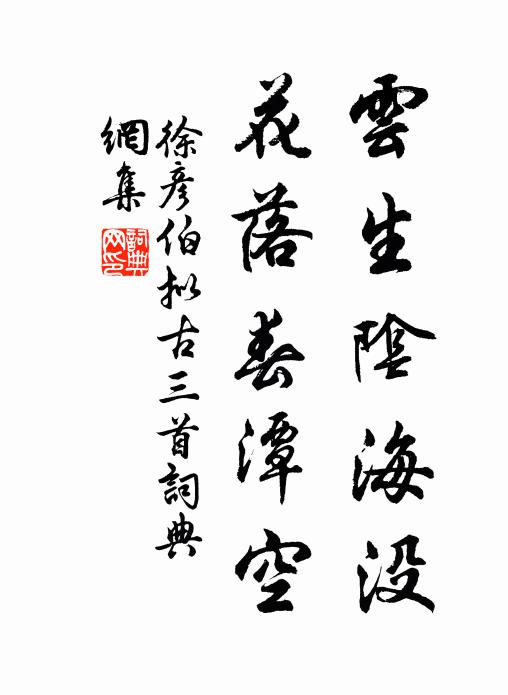 雲生陰海没
花落春潭空
徐彥伯拟古三首詞典
網集
詞典
网印